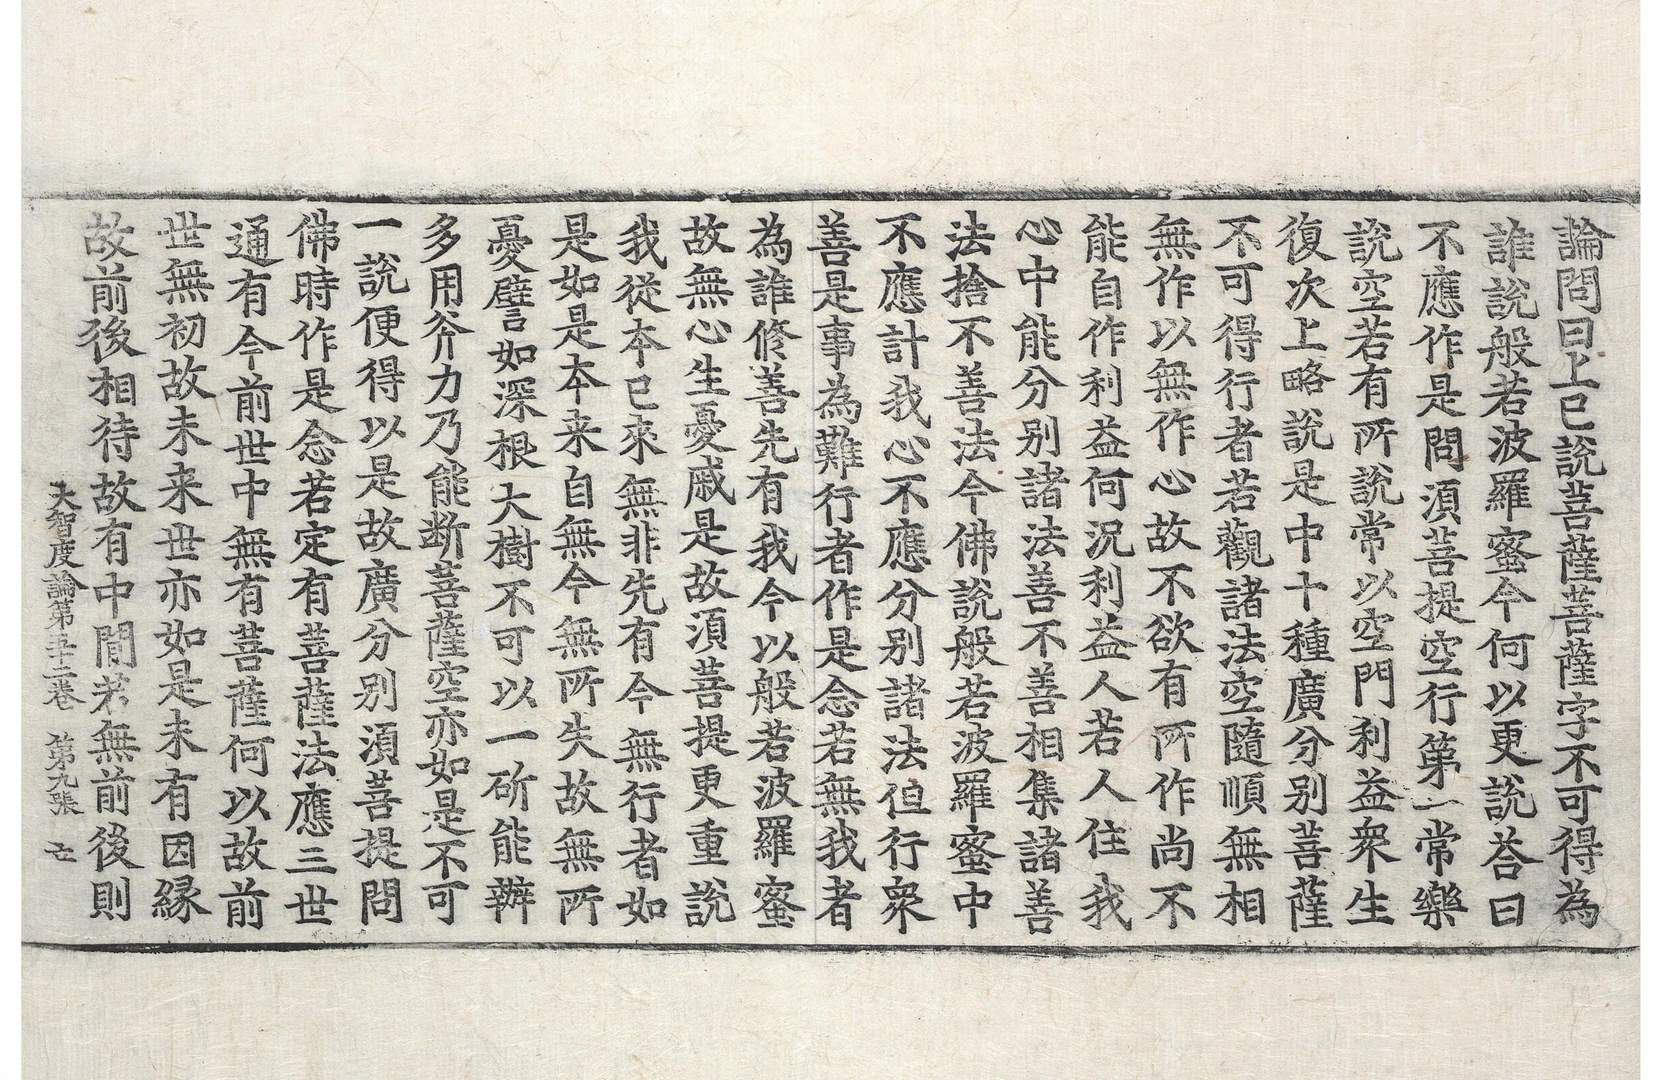 論問曰上已說菩薩菩薩字不可得為
誰說般若波羅蜜今何以更說荅曰
不應作是問須菩提空行第一常樂
說空若有所說常以空門利益衆生
復次上略說是中十種廣分別菩薩
不可得行者若觀諸法空隨順無相
無作以無作心故不欲有所作尚不
能自作利益何況利益人若人住我
心中能分別諸法善不善相集諸善
法捨不善法今佛說般若波羅蜜中
不應計我心不應分別諸法但行衆
善是事為難行者作是念若無我者
為誰修善先有我今以般若波羅蜜
故無心生憂慼是故須菩提更重說
我從本已來無非先有今無行者如
是如是本来自無今無所失故無所
憂譬如深根大樹不可以一斫能辦
多用斧力乃能断菩薩空亦如是不可
一說便得以是故廣分別須菩提問
佛時作是念若定有菩薩法應三世
通有今前世中無有菩薩何以故前
世無初故未来世亦如是未有因緣
故前後相待故有中間若無前後則
大智度論第五十二卷 第九張